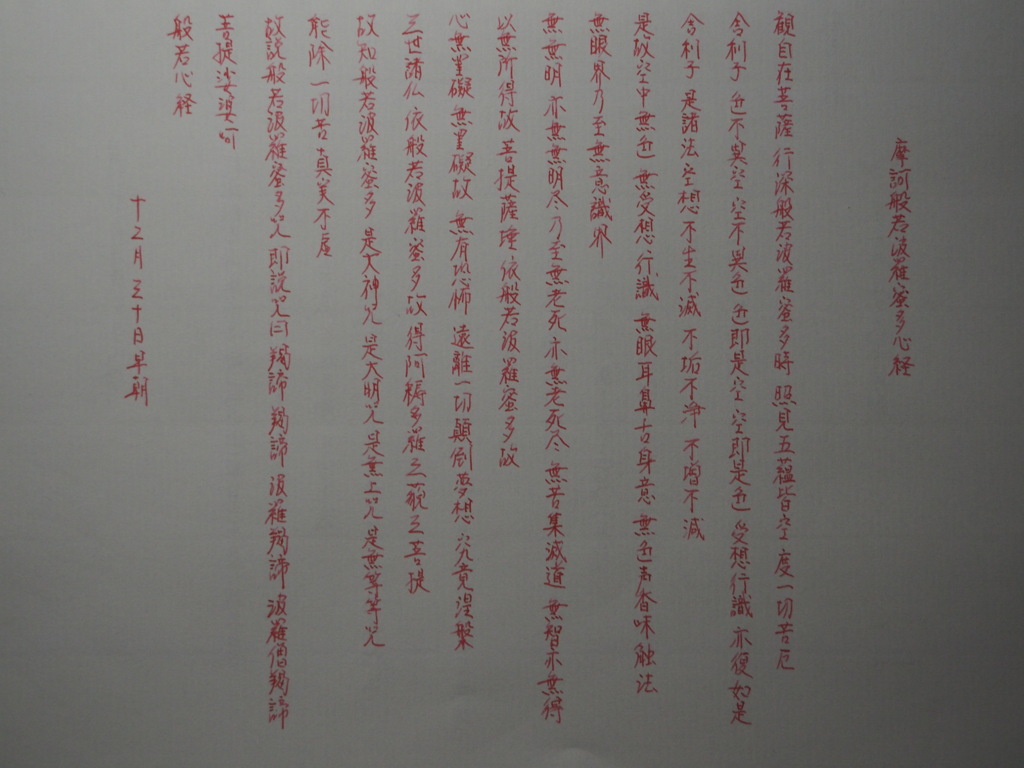 摩訶般若波羅蜜多心経
観自在菩薩 行深般若波羅蜜多時 照見五蘊皆空 度一切苦厄
舎利子 色不異空 空不異色 色即是空 空即是色 受想行識 亦復如是
舎利子 是諸法空想 不生不滅 不垢不浄 不増不減
是故空中 無色 無受想行識 無眼耳鼻舌身意 無色声香味触法
無眼界 乃至無意識界
無無明 亦無無明尽 乃至無老死 亦無老死尽 無苦集滅道 無智亦無得
以無所得故 菩提薩埵 依般若波羅蜜多故
心無罣礙 無罣礙故 無有恐怖 遠離一切顛倒夢想 究竟涅槃
三世諸仏 依般若波羅蜜多故 得阿耨多羅三藐三菩提
故知般若波羅蜜多 是大神咒 是大明咒 是無上咒 是無等等咒
能除一切苦 真実不虚
故説般若波羅蜜多咒 即説咒曰 羯諦 羯諦 波羅羯諦 波羅僧羯諦
菩提娑婆呵
般若心経
十二月三十日早朝